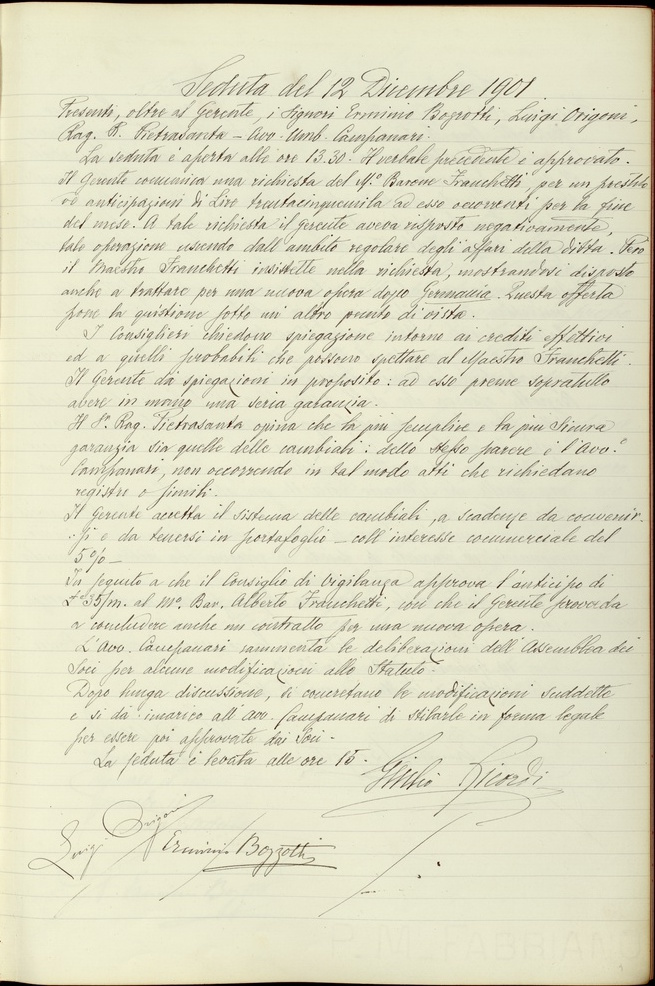 Seduta del 12 Dicembre 1901.
Presenti, oltre al Gerente, i Signori Erminio Bozzotti, Luigi Origoni,
Rag. F. Pietrasanta - Avv. Amb. Campanari.
La seduta è aperta alle ore 13.30. Il verbale precedente è approvato.
Il Gerente comunica una richiesta del M.º Barone Franchetti, per un prestito
od anticipazioni di Lire trentacinquemila ad esso occorrenti per la fine
del mese. A tale richiesta il gerente aveva risposto negativamente,
tale operazione uscendo dall'ambito regolare degli affari della Ditta. Però
il Maestro Franchetti insistette nella richiesta, mostrandosi disposto
anche a trattare per una nuova opera dopo Germania. Questa offerta
pone la quistione sotto un altro punto di vista.
I Consiglieri chiedono spiegazione intorno ai crediti effettivi
ed a quelli probabili che possono spettare al Maestro Franchetti.
Il Gerente dà spiegazioni in proposito: ad esso preme sopratutto
avere in mano una seria garanzia.
Il S.r Rag. Pietrasanta opina che la più semplice e la più sicura
garanzia sia quella delle cambiali: dello stesso parere è l'Avv.º
Campanari, non occorrendo in tal modo atti che richiedano
registro o simili.
Il Gerente accetta il sistema delle cambiali, a scadenze da convenir-
si e da tenersi in portafoglio - coll'interesse commerciale del
5% -
In seguito a che il Consiglio di Vigilanza approva l'anticipo di
L. 35/m. al M.º Bar. Alberto Franchetti, così che il Gerente provveda
a concludere anche un contratto per una nuova opera.
L'Avv. Campanari rammenta le deliberazioni dell'Assemblea dei
Soci per alcune modificazioni allo Statuto.
Dopo lunga discussione, si concretano le modificazioni suddette
e si dà incarico all'avv. Campanari di stilarle in forma legale
per essere poi approvate dai Soci.
La seduta è levata alle ore 15.
Giulio Ricordi
Luigi Origoni
Erminio Bozzotti